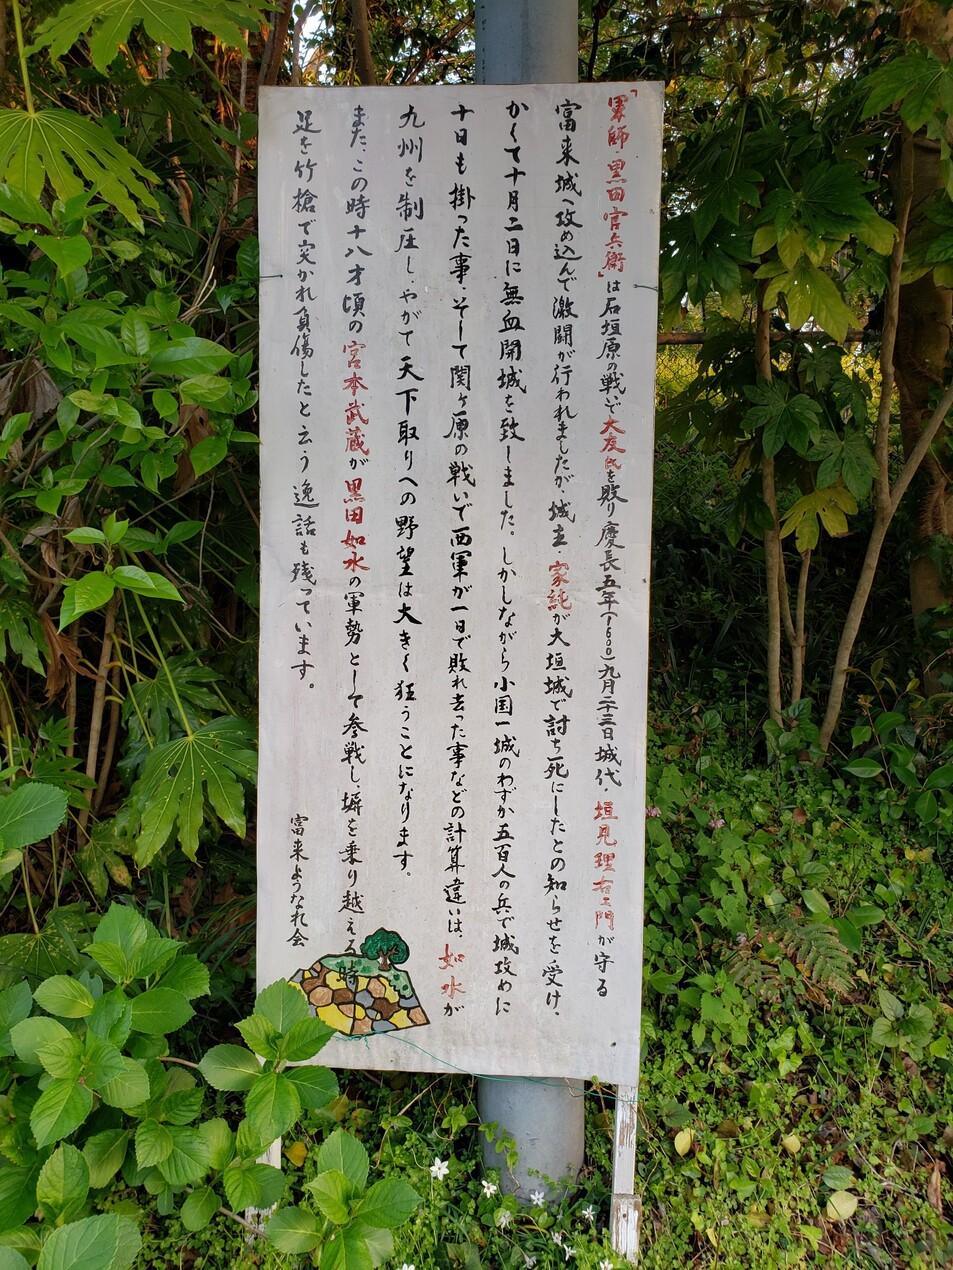 「軍師・黒田官兵衛」は石垣原の戦いで大友氏を敗り慶長五年(1600)九月二十三日城代・垣見理右エ門が守る
富来城へ攻め込んで激闘が行われましたが、城主・家純が大垣城で討ち死にしたとの知らせを受け、
かくて十月二日に無血開城を致しました。しかしながら小国一城のわずか五百人の兵で城攻めに
十日も掛った事・そして関ヶ原の戦いで西軍が一日で敗れ去った事などの計算違いは、如水が
九州を制圧し、やがて天下取りへの野望は大きく狂うことになります。
また、この時十八才頃の宮本武蔵が黒田如水の軍勢として参戦し、塀を乗り越える時
足を竹槍で突かれ負傷したと云う逸話も残っています。
富来ようなれ会